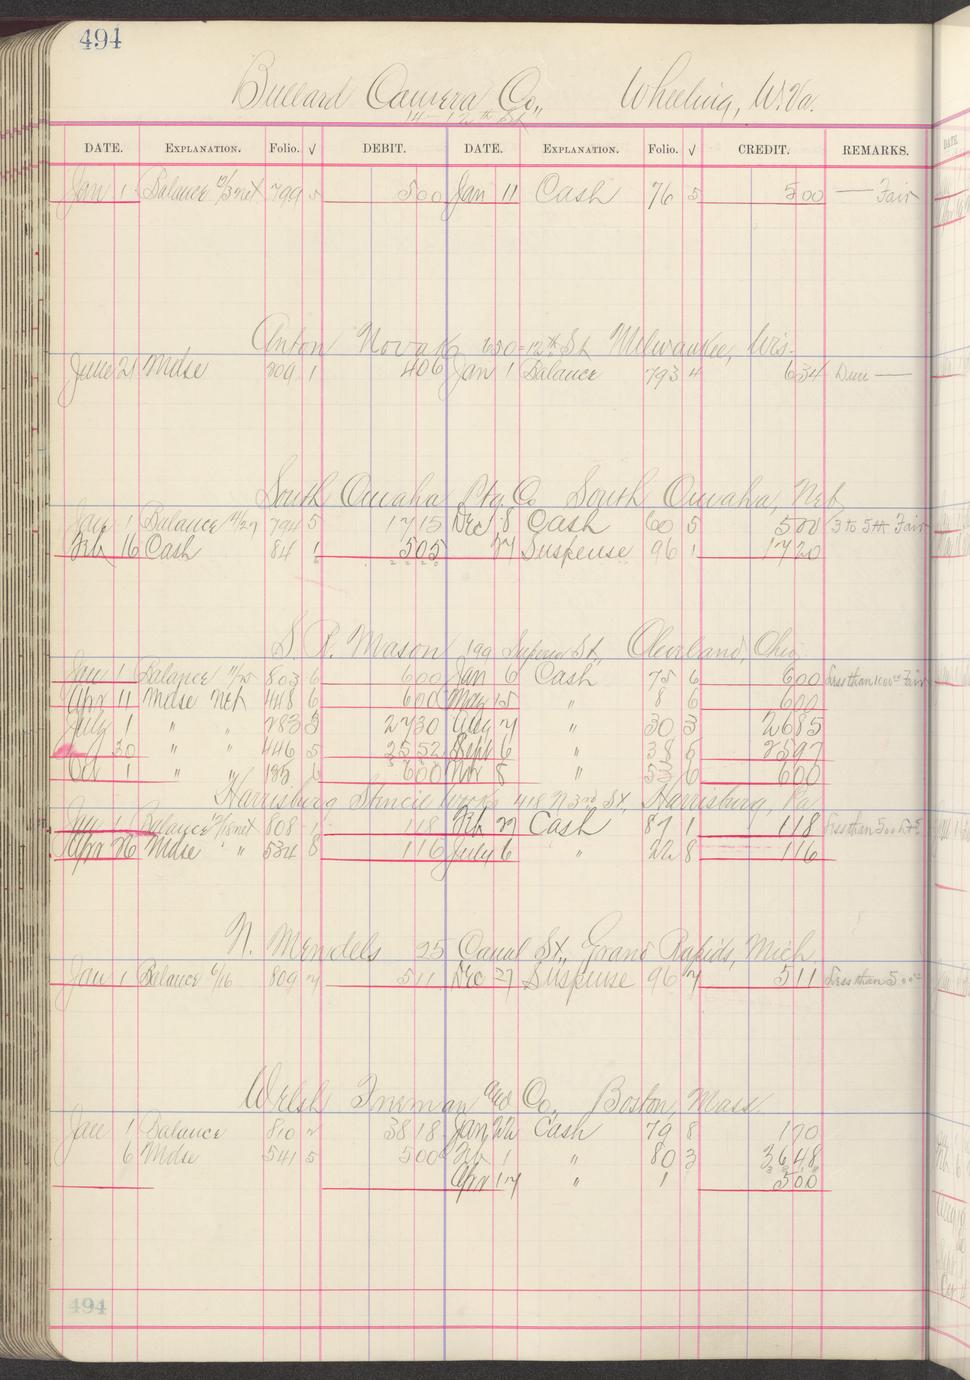 494
Bullard Camera Co., Wheeling, W. Va.
14 - 12th St
DATE. EXPLANATION. Folio. √ DEBIT. DATE. EXPLANATION. Folio. √ CREDIT. REMARKS.
Jan 1 Balance 12/3 net 799 5 500 Jan 11 Cash 76 5 500 — Fair
Anton Novak 650 - 12th St Milwaukee, Wis.
June 21 Mdse 209 1 406 Jan 1 Balance 793 4 634 Due —
South Omaha Ptg. Co South Omaha, Neb.
Jan 1 Balance 11/27 794 5 1715 Dec 8 Cash 60 5 500 3 to 5 th Fair
Feb 16 Cash 84 1 505 27 Suspense 96 1 1720
S. R. Mason 199 Superior St, Cleveland, Ohio
Jan 1 Balance 11/25 803 6 600 Jan 6 Cash 75 6 600 Less than 1000 Fair
Apr 11 Mdse Net 448 6 600 May 15 " 8 6 600
July 1 " " 283 3 2730 Aug 7 " 30 3 2685
30 " " 446 5 2552 Sept 6 " 38 5 2597
Oct 1 " " 185 6 600 Nov 8 " 53 6 600
Harrisburg Stencil Works 418 N 3rd St, Harrisburg, Pa.
Jan 1 Balance 12/18 net 808 1 118 Feb 27 Cash 87 1 118 Less than 500
Apr 26 Mdse " " 534 8 116 July 6 " 22 8 116
N. Mendels 25 Canal St., Grand Rapids, Mich.
Jan 1 Balance 6/16 809 7 511 Dec 27 Suspense 96 7 511 Less than 500
Welsh Inman and Co., Boston, Mass.
Jan 1 Balance 810 3818 Jan 22 Cash 79 8 170
6 Mdse 541 5 500 Feb 1 " 80 3 3648
Apr 17 " 1 500
494